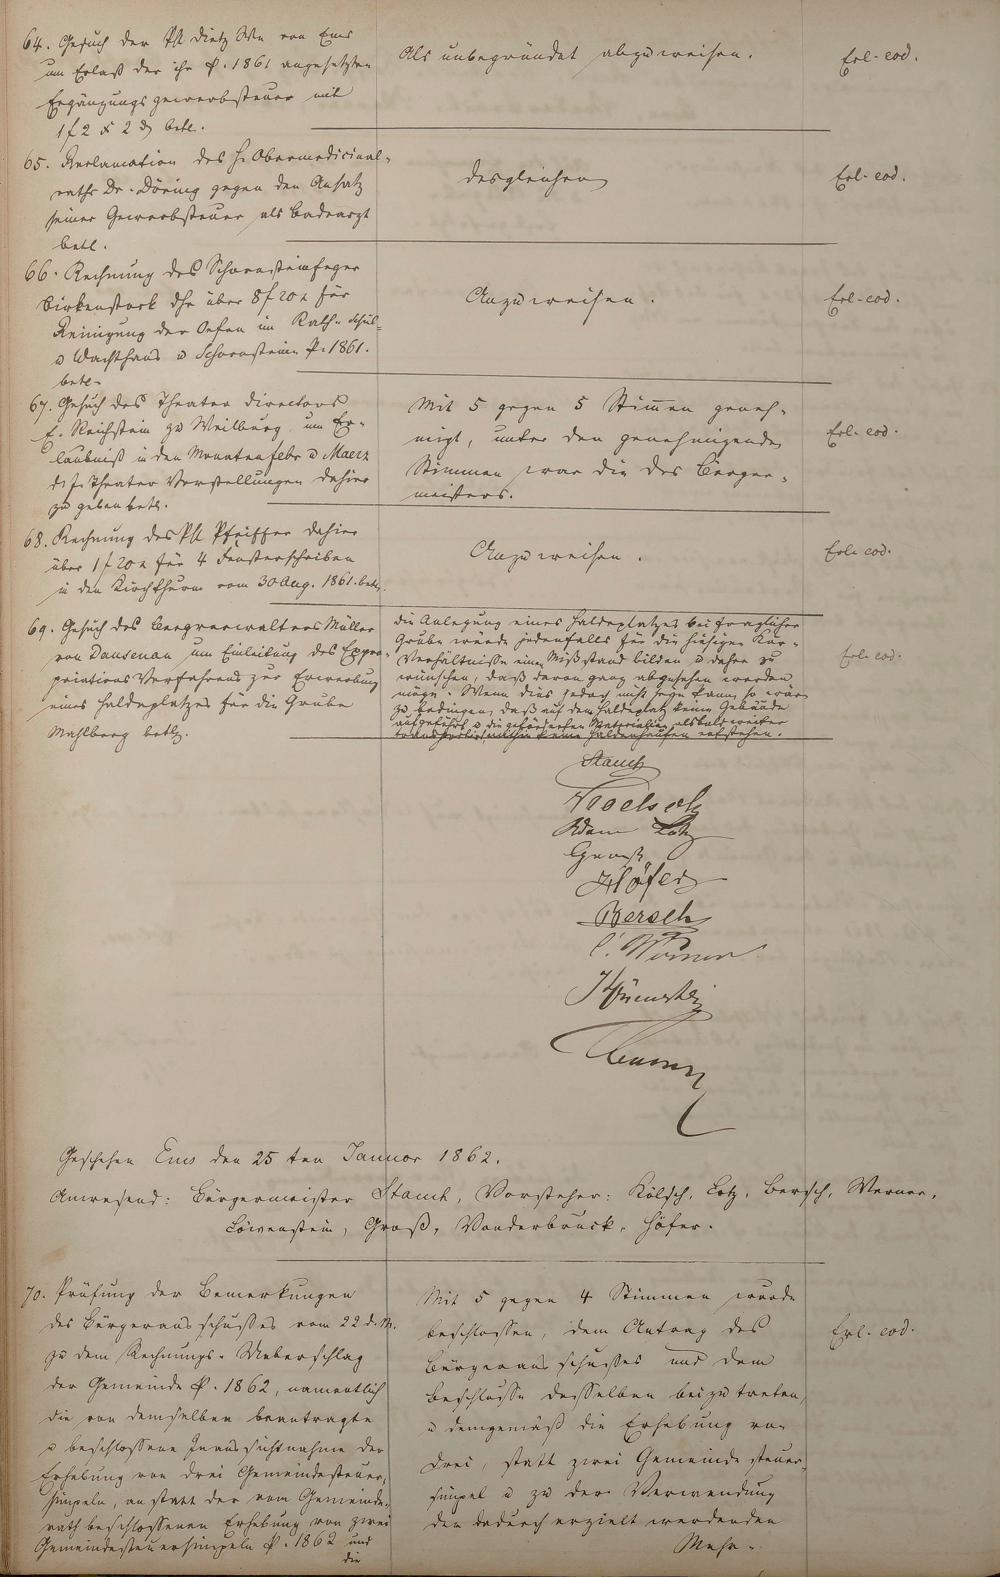 64. Gesuch der Ph Dietz Wwe von Ems
um Erlaß der ihr p. 1861 angesetzten
Ergänzungsgewerbsteuer mit
1 f 2 x 2 d betr.
Als unbegründet abzuweisen.
Erl. eod.
65. Reclamation des H. Obermedicinal-
raths Dr. Döring gegen den Ansatz
seiner Gewerbsteuer als Badearzt
betr.
desgleichen
Erl. eod.
66. Rechnung des Schornsteinfeger
Birkenstock dhr über 8 f 20 x für
Reinigung der Oefen im Rath- Schul-
u Wachthaus u Schornsteine p. 1861.
betr.
Anzuweisen.
Erl. eod.
67. Gesuch des Theater Directors
E. Reichstein zu Weilburg um Er-
laubniß in den Monaten Febr u Maerz
d. J. Theater Vorstellungen dahier
zu geben betr.
Mit 5 gegen 5 Stimmen geneh-
migt, unter den genehmigenden
Stimmen war die des Bürger-
meisters.
Erl. eod.
68. Rechnung des Ph Pfeiffer dahier
über 1 f 20 x für 4 Fensterscheiben
in den Kirchthurm vom 30 Aug. 1861. betr.
Anzuweisen.
Erl. eod.
69. Gesuch des Bergverwalters Müller
von Dausenau um Einleitung des Expro-
priations Verfahrens zur Erwerbung
eines Haldeplatzes für die Grube
Mahlberg betr.
Die Anlegung eines Haldeplatzes bei fraglicher
Grube würde jedenfalls für die hiesigen Kur-
Verhältnisse einen Mißstand bilden u daher zu
wünschen, daß davon ganz abgesehen werden
möge. Wenn dies jedoch nicht sein kann, so wäre
zu bedingen, daß auf dem Haldeplatz keine Gebäude
aufgeführt u die geförderten Materialien alsbald weiter
transportirt, mithin keine Haldenhaufen entstehen.
Erl. eod.
Stamb
Koelsch
Adam Lotz
Gross
Höfer
Bersch
C. Werner
Geschehen Ems den 25ten Januar 1862.
Anwesend: Bürgermeister Stamb, Vorsteher: Kölsch, Lotz, Bersch, Werner,
Löwenstein, Groß, Vonderbruck, Höfer.
70. Prüfung der Bemerkungen
des Bürgerausschusses vom 22 d. M.
zu dem Rechnungs-Ueberschlag
der Gemeinde p. 1862, namentlich
die von demselben beantragte
u beschlossene Inaussichtnahme der
Erhebung von drei Gemeindesteuer-
simpeln, anstatt der vom Gemeinde-
rath beschlossenen Erhebung von zwei
Gemeindesteuersimpeln p. 1862 und
die
Mit 5 gegen 4 Stimmen wurde
beschlossen, dem Antrag des
Bürgerausschusses und dem
Beschlusse desselben beizutreten,
u demgemäß die Erhebung von
drei, statt zwei Gemeindesteuer-
simpel u zu der Verwendung
der dadurch erzielt werdenden
Mehr-
Erl. eod.